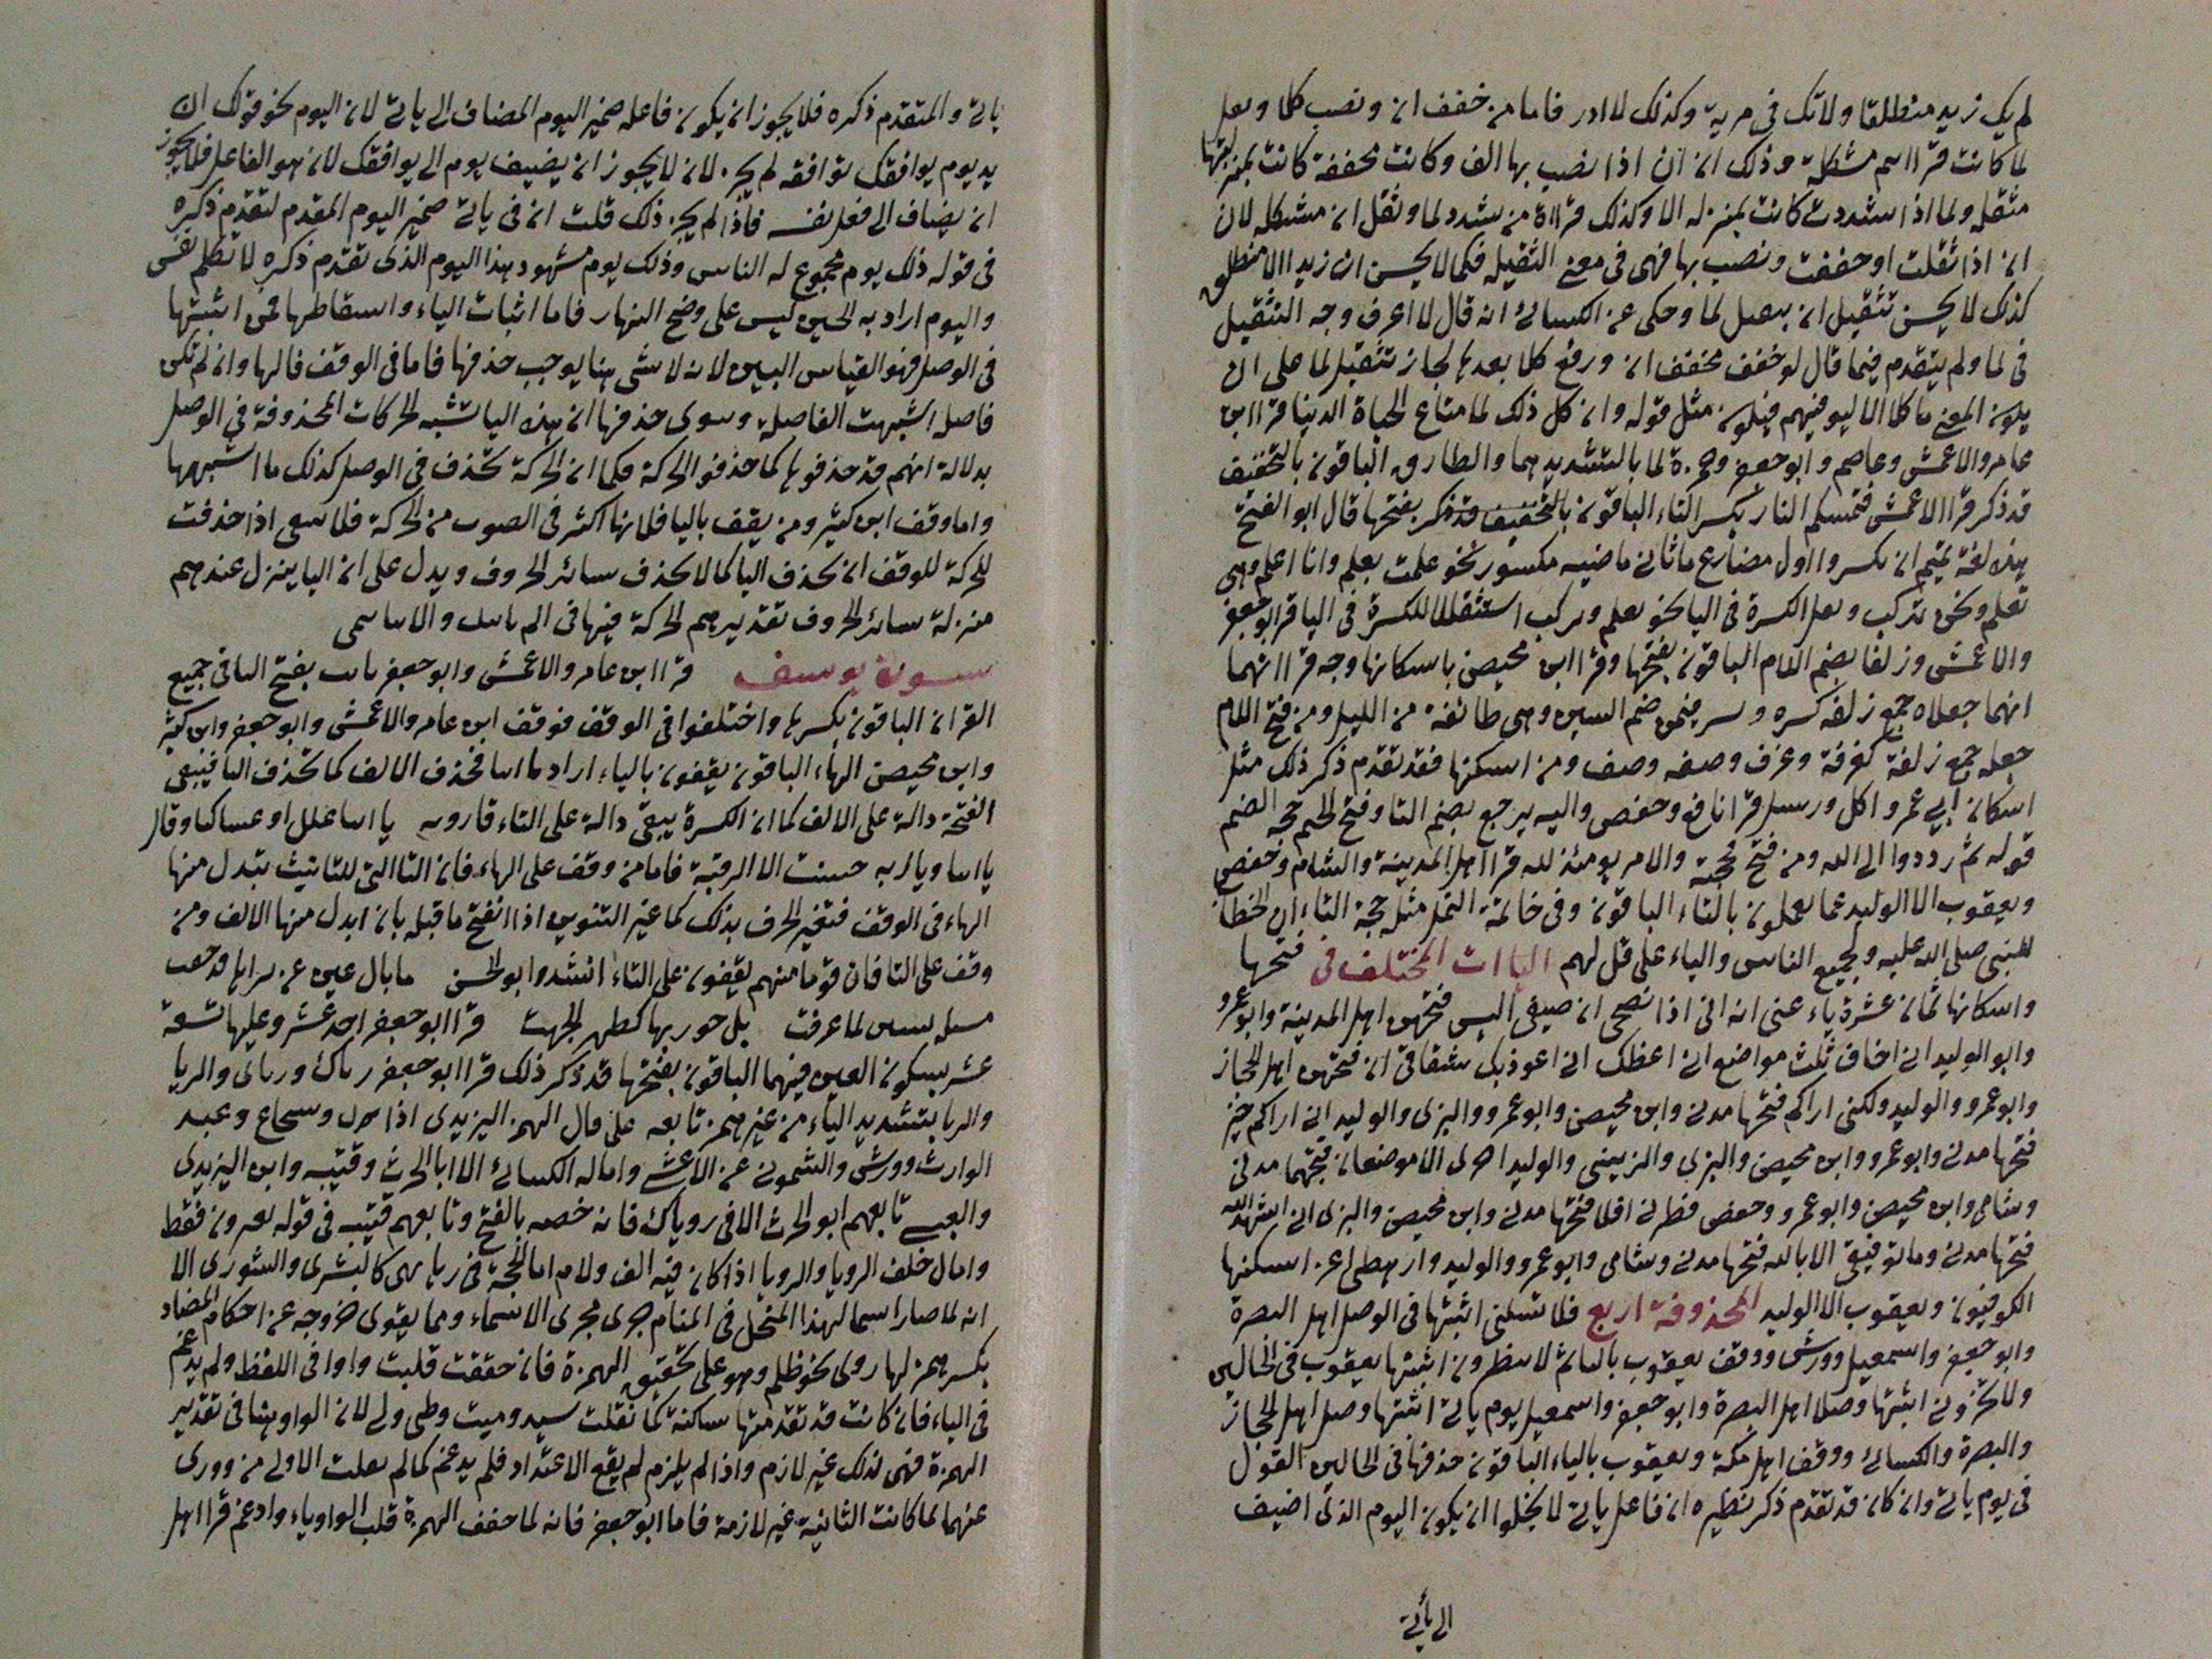 لم يك زيد منطلقا ولا تك في مرية وكذلك لا ادر فاما من خفف ان ونصب كلا وبعل
لما كانت قراا سم مشكلة وذلك ان ان اذا نصب بها الف وكانت مخففة كانت بمنزلتها
مثقله ولما اذا شددت كانت بمنزله الا وكذلك قراة من شدد لما وثقل ان مشكله لان
ان اذا ثقلت او خففت ونصب بها فهى في معنى الثقيله فكما لا يحسن ان زيدا الا منطلق
كذلك لا يحسن تثقيل ان بثقيل لما وحكى عن الكسائى انه قال لا اعرف وجه التثقيل
في لما ولم يتقدم فيما قال لو خفف مخفف ان ورفع كلا بعدها لجاز تثقيل لما على ان
يكون المعنى ما كلا الا ليوفينهم فيكون مثل قوله وان كل ذلك لما متاع الحياة الدنيا قرا ابن
عامر والاعمش وعاصم وابو جعفر وحمزة لما بالتشديد هنا والطارق الباقون بالتخفيف
قد ذكر قرا الاعمش فتمسكم النار بكسر التاء الباقون بالتخفيف قد ذكر بفتحها قال ابو الفتح
هذه لغة تميم ان يكسروا اول مضارع ما ثاني ماضيه مكسور نحو علمت يعلم وانا اعلم وهى
تعلم ونحن نركب وبعل الكسرة في اليا نحو يعلم ويركب استثقالا للكسرة في اليا قرا ابو جعفر
والاعمش وزلفا بضم اللام الباقون بفتحها وقرا ابن محيصن باسكانها وجه قرا انهما
انهما جعلاه جمع زلفه كسره وبسر فيمن ضم السين وهى طائفة من الليل ومن فتح اللام
جعله جمع زلفة كغرفة وغرف وصفه وصف ومن اسكنها فقد تقدم ذكر ذلك مثل
اسكان ابي عمرو اكل ورسل قرا نافع وحفص واليه يرجع بضم التا وفتح الجيم حجه الضم
قوله ثم ردوا الى الله ومن فتح فحجته والامر يومئذ لله قرا اهل المدينة والشام وحفص
ويعقوب الا الوليد عما يعملون بالتاء الباقون وفي خاتمة النمل مثله حجة التاء ان الخطاب
للنبى صلى الله عليه ولجميع الناس والياء على قل لهم الياات المختلف في فتحها
واسكانها ثمان عشرة ياء عنى انه انى اذا نصحى ان ضيفى اليس فتحهن اهل المدينة وابو عمرو
وابو الوليد انى اخاف ثلث مواضع انى اعظك انى اعوذ بك شقاقى ان فتحهن اهل الحجاز
وابو عمرو والوليد ولكنى اراكم فتحها مدنى وابن محيصن وابو عمرو والبزى والوليد انى اراكم بخير
فتحها مدنى وابو عمرو وابن محيصن والبزى والزينبى والوليد اجرى الا موضعان فتحهما مدنى
وشامى وابن محيصن وابو عمرو وحفص فطرنى افلا فتحها مدنى وابن محيصن والبزى انى اشهد الله
فتحها مدنى وما توفيقى الا بالله فتحها مدنى وشامى وابو عمرو والوليد وارهطى اعز اسكنها
الكوفيون ويعقوب الا الوليد المحذوفة اربع فلا تسلنى اثبتها في الوصل اهل البصرة
وابو جعفر واسمعيل وورش ووقف يعقوب بالياء ثم لا ينظرون اثبتها يعقوب في الحالين
ولا تخزونى اثبتها وصلا اهل البصرة وابو جعفر واسمعيل يوم ياتى اثبتها وصلا اهل الحجاز
والبصرة والكسائى ووقف اهل مكة ويعقوب بالياء الباقون حذفها في الحالين القول
في يوم ياتى وان كان قد تقدم ذكر نظيره ان فاعل ياتى لا يخلوا ان يكون اليوم الذى اضيف
الى يأتى
ياتى والمتقدم ذكره فلا يجوز ان يكون فاعله ضمير اليوم المضاف الى ياتى لان اليوم نحو قولك ان
يد يوم يوافقك توافقه لم يجز لان لا يجوز ان يضيف يوم الى يوافقك لان هو الفاعل فلا يجوز
ان يضاف الى فعل نفسه فاذا لم يجز ذلك قلت ان في ياتى ضمير اليوم المقدم لتقدم ذكره
في قوله ذلك يوم مجموع له الناس وذلك يوم مشهود هذا اليوم الذى تقدم ذكره لا تكلم نفس
واليوم اراد به الحين ليس على وضح النهار فاما اثبات الياء واسقاطها فمن اثبتها
في الوصل فهو القياس البين لانه لا شى هنا يوجب حذفها فاما في الوقف فالها وان لم تكن
فاصله اشبهت الفاصلة وسوى حذفها ان هذه اليا تشبه الحركات المحذوفة في الوصل
بدلالة انهم قد حذفوها كما حذفوا الحركة فكما ان الحركة تحذف في الوصل كذلك ما اشبهها
واما وقف ابن كثير ومن يقف باليا فلانها اكثر في الصوت من الحركة فلا ينبغى اذا حذفت
الحركة للوقف ان تحذف اليا كما لا تحذف سائر الحروف ويدل على ان اليا ينزل عندهم
منزلة سائر الحروف تقديرهم الحركة فيها في الم ياتيك والانبا تنمى
سورة يوسف قرا ابن عامر والاعمش وابو جعفر يابت بفتح التا في جميع
القران الباقون بكسرها واختلفوا في الوقف فوقف ابن عامر والاعمش وابو جعفر وابن كثير
وابن محيصن الهاء الباقون يقفون بالياء اراد يا ابتا فحذف الالف كما تحذف اليا فيبقى
الفتحة دالة على الالف كما ان الكسرة يبقى دالة على التاء قاروه يا ابتا علك او عساكا وقال
يا ابتا ويا اربه حسنت الا الرقبة فاما من وقف على الهاء فان التا التى للتانيث تبدل منها
الهاء في الوقف فتغير الحرف بذلك كما غير التنوين اذا انفتح ما قبله بان ابدل منها الالف ومن
وقف على التا فان قوما منهم يقفون على التاء انشد ابو الحسن ما بال عين عن كراها قد جفت
مسبلة تستن لما عرفت بل جوز تيهاء كظهر الحجفت قرا ابو جعفر احد عشر وعليها تسعة
عشر بسكون العين فيهما الباقون بفتحها قد ذكر ذلك قرا ابو جعفر رياك ورياى والريا
والريا بتشديد الياء من غير همز تابعه على الهمز اليزيدى اذا وشجاع وعبد
الوارث وورش والشمونى عن الاعشى واماله الكسائى الا ابا الحرث وقتيبه وابن اليزيدى
والعبسى تابعهم ابو الحرث الا في روياك فانه خصه بالفتح وتابعهم قتيبه في قوله تعبرون فقط
وامال خلف الرويا والرويا اذا كان فيه الف ولام اما الحجة في رياى كالبشرى والشورى الا
انه لما صار اسما لهذا المتخيل في المنام جرى مجرى الاسماء ومما يقوى خروجه عن احكام المضاد
بكسرهم لها روى نحو ظلم وهو على تحقيق الهمزة فان خففت قلبت واوا في اللفظ ولم يدغم
في الياء فان كانت قد تقدمتها ساكنة كما نقلت سيد وميت وطى ولى لان الواو هنا في تقدير
الهمزة فهى لذلك غير لازم واذا لم يلزم لم يقع الاعتداد فلم يدغم كما لم يقلب الاولى من وورى
عنهما لما كانت الثانية غير لازمة فاما ابو جعفر فانه لما خفف الهمزة قلب الواو ياء وادغم قرا اهل